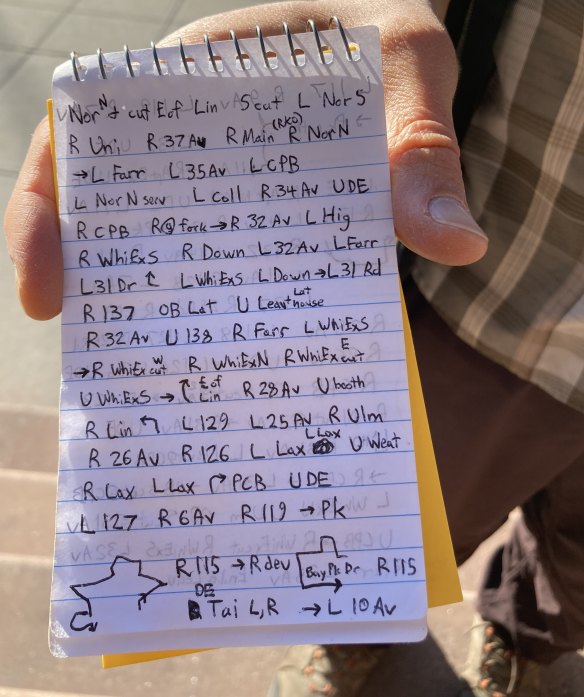 Nor N & cut Eof Lin S cut L Nor S
R Uni R 37 Av R Main (RKO) R Nor N
→ L Farr L 35 Av L CPB
L Nor N serv L Coll R 34 Av UDE
R CPB R @ fork → R 32 Av L Hig
R WhiExS R Down L 32 Av L Farr
L 31 Dr ↑ L WhiExS L Down → L 31 Rd
R 137 OB Lat U Leavt Lat house
R 32 Av U 138 R Farr L WhiExS
→ R WhiEx W cut R WhiExN R WhiEx E cut
U WhiExS → Eof Lin R 28 Av U booth
R Lin ↰ L 129 L 25 Av R Ulm
R 26 Av R 126 L Lax L Lax U Weat
R Lax L Lax ↱ PCB UDE
L 127 R 6 Av R 119 → Pk
R 115 → R dev Bay Pk Dr R 115
DE Tai L, R → L 10 Av